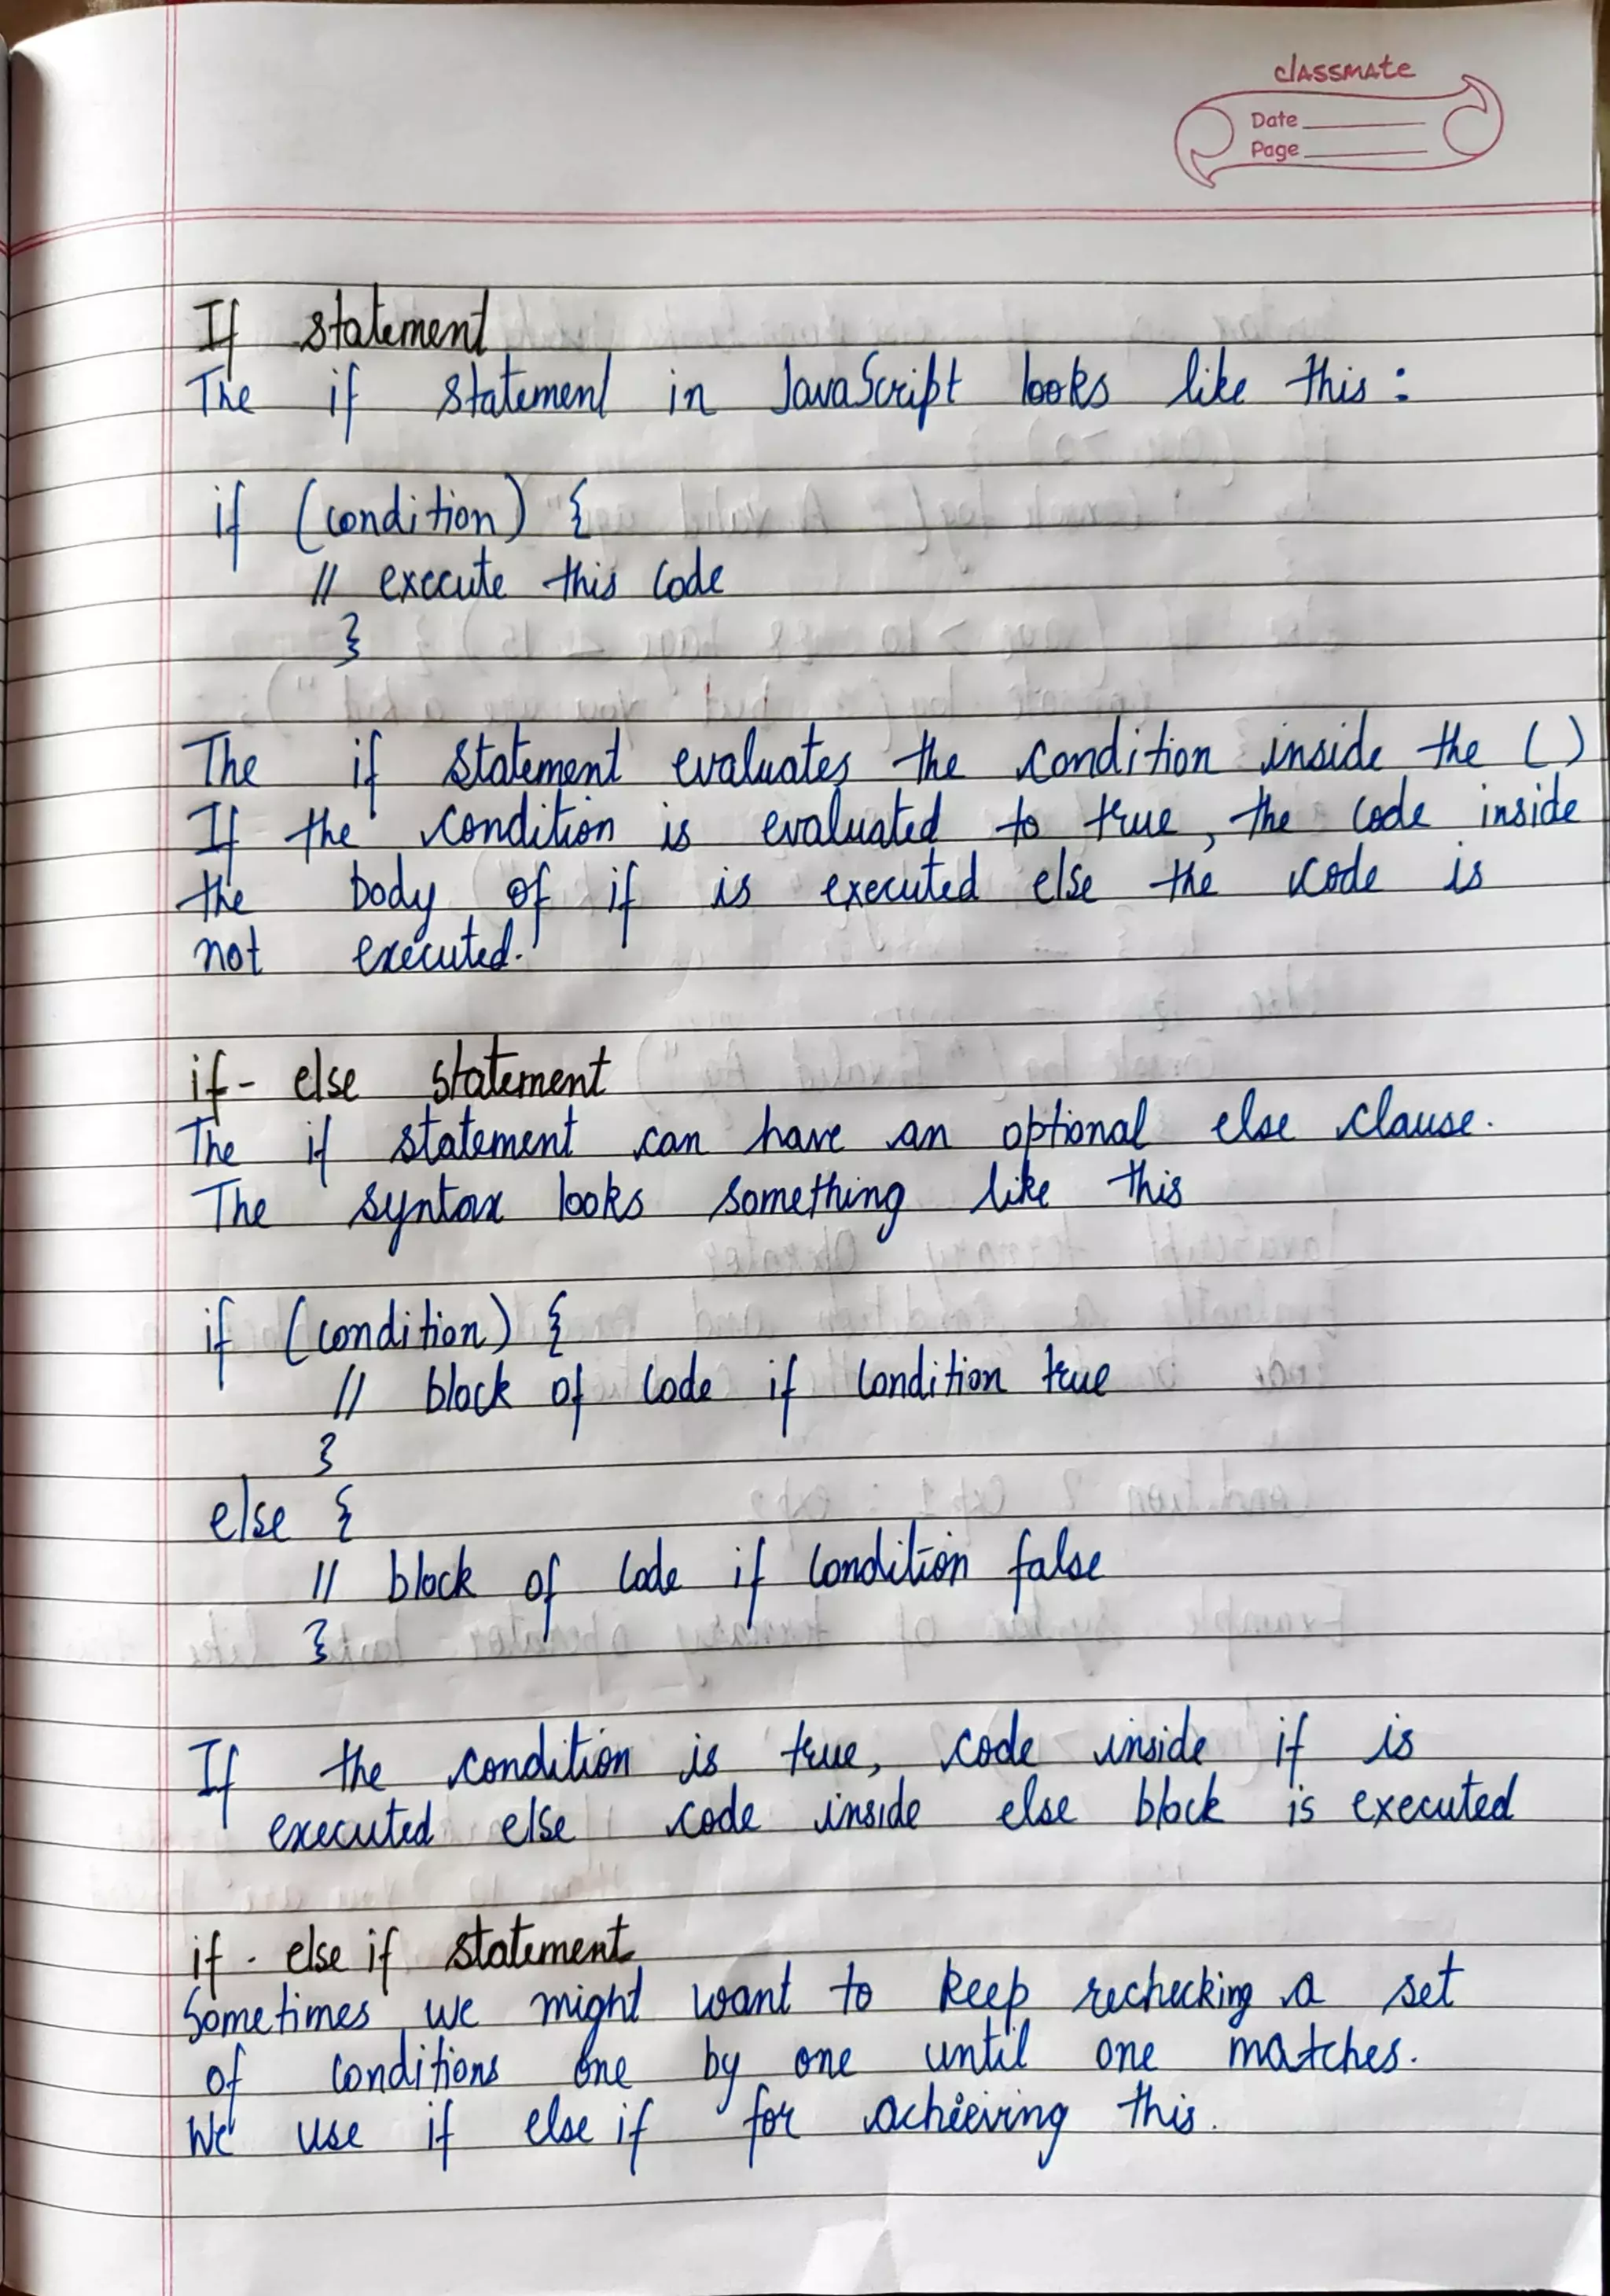 classmate
Date
Page
If statement
The if statement in JavaScript looks like this :
if (condition) {
// execute this code
}
The if statement evaluates the condition inside the ()
If the condition is evaluated to true, the code inside
the body of if is executed else the code is
not executed.
if - else statement
The if statement can have an optional else clause.
The syntax looks something like this
if (condition) {
// block of code if condition true
}
else {
// block of code if condition false
}
If the condition is true, code inside if is
executed else code inside else block is executed
if - else if statement
Sometimes we might want to keep rechecking a set
of conditions one by one until one matches.
We use if else if for achieving this.